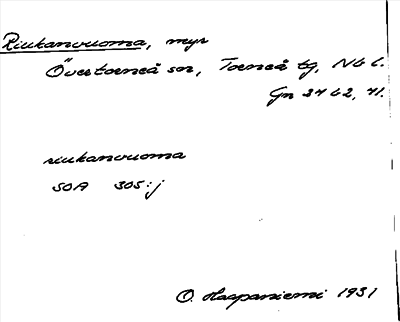 Riukanvuoma, myr
Övertorneå sn, Torneå tg, Nb l.
Gn 3762, 71.
riukanvuoma
SOA 305:j
O. Haapaniemi 1931